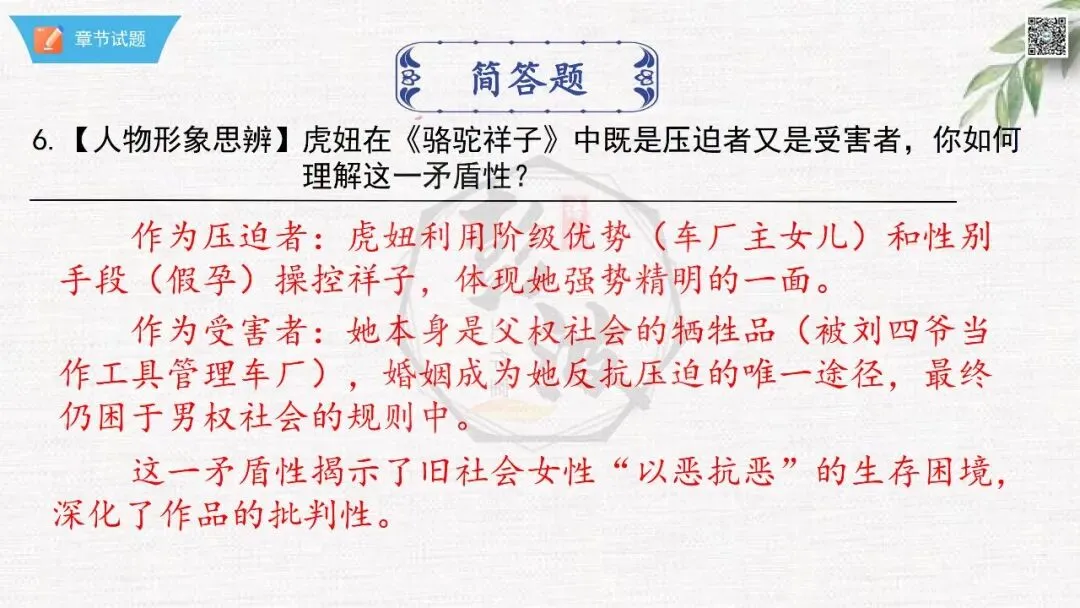 章节试题
简答题
6.【人物形象思辨】虎妞在《骆驼祥子》中既是压迫者又是受害者，你如何
理解这一矛盾性？
作为压迫者：虎妞利用阶级优势（车厂主女儿）和性别
手段（假孕）操控祥子，体现她强势精明的一面。
作为受害者：她本身是父权社会的牺牲品（被刘四爷当
作工具管理车厂），婚姻成为她反抗压迫的唯一途径，最终
仍困于男权社会的规则中。
这一矛盾性揭示了旧社会女性“以恶抗恶”的生存困境，
深化了作品的批判性。